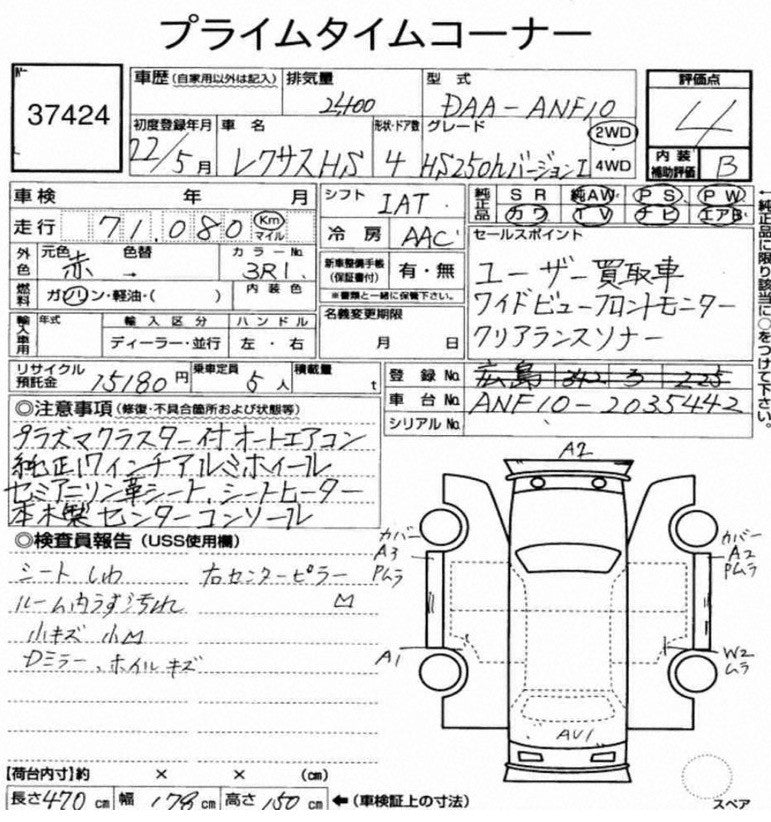 プライムタイムコーナー
37424
車歴 (自家用以外は記入) 排気量 2,400 型式 DAA-ANF10
評価点 4
初度登録年月 22/5月 車名 レクサスHS 形状・ドア数 4 グレード HS250hバージョンI 2WD 4WD
内装補助評価 B
車検 年 月
シフト IAT
純正品 SR 純AW PS PW
カワ TV ナビ エアB
走行 71,080 Km マイル
冷房 AAC
セールスポイント
外色 元色 赤 色替 → カラーNo 3R1
新車整備手帳 (保証書付) 有・無
※書類と一緒に保管下さい。
ユーザー買取車
ワイドビューフロントモニター
クリアランスソナー
燃料 ガソリン・軽油・( ) 内装色
名義変更期限 月 日
輸入車用 年式 輸入区分 ハンドル
ディーラー・並行 左・右
リサイクル預託金 15180円 乗車定員 5人 積載量 t
登録No. 広島 342 ラ 225
車台No. ANF10-2035442
シリアルNo.
←純正品に限り該当に○をつけて下さい。
◎注意事項 (修復・不具合箇所および状態等)
プラズマクラスター付オートエアコン
純正17インチアルミホイール
セミアニリン革シート、シートヒーター
本木製センターコンソール
◎検査員報告 (USS使用欄)
シートしわ 右センターピラー
ルーム内うす汚れ M
小キズ 小M
Dミラー、ホイルキズ
A2
カバー
A3
Pムラ
A1
カバー
A2
Pムラ
W2
ムラ
AU1
スペア
【荷台内寸】約 × × (cm)
長さ 470 cm 幅 178 cm 高さ 150 cm ←(車検証上の寸法)